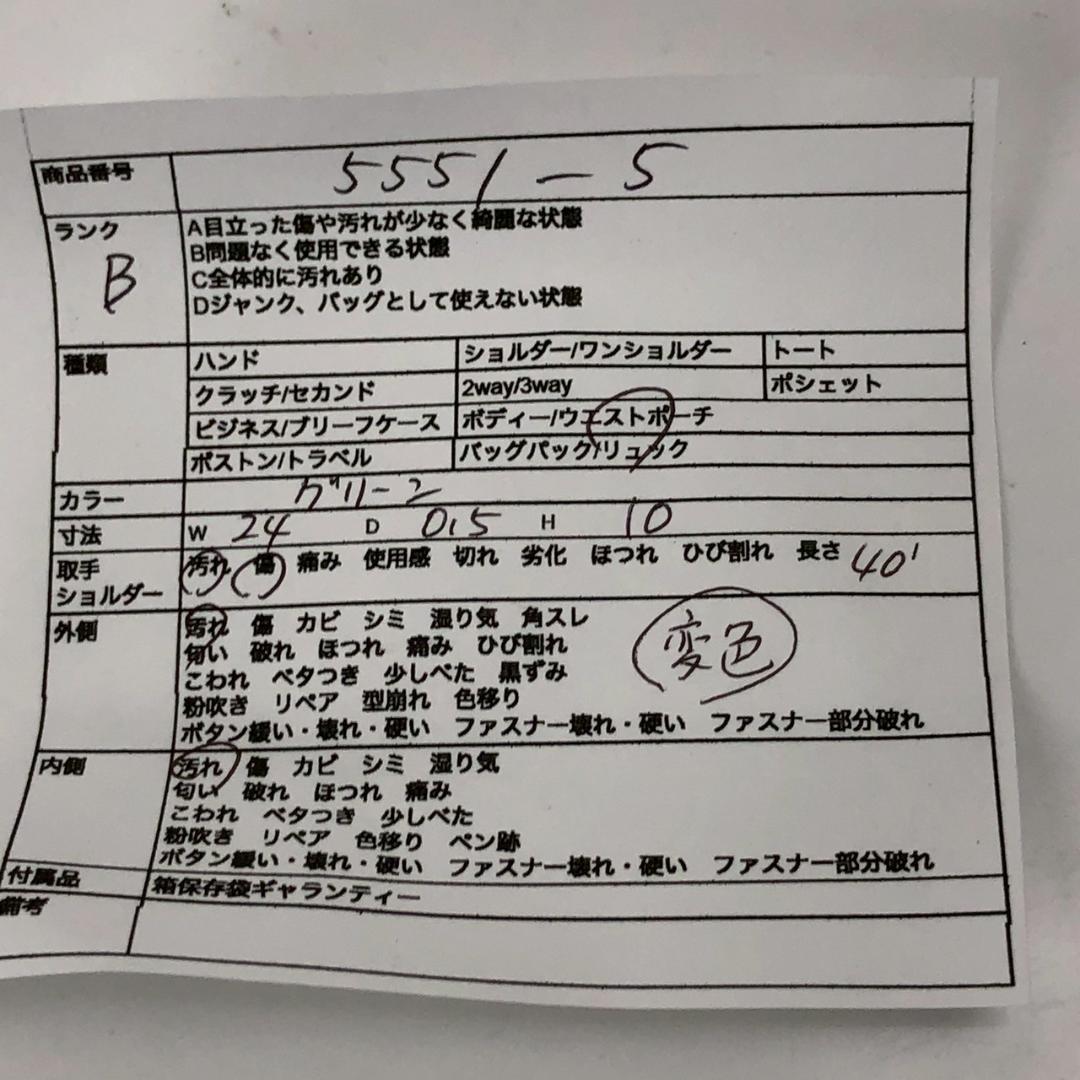 商品番号 5551-5
ランク B
A目立った傷や汚れが少なく綺麗な状態
B問題なく使用できる状態
C全体的に汚れあり
Dジャンク、バッグとして使えない状態
種類 ハンド ショルダー/ワンショルダー トート
クラッチ/セカンド 2way/3way ポシェット
ビジネス/ブリーフケース ボディー/ウエストポーチ
ボストン/トラベル バッグパック/リュック
カラー グリーン
寸法 W 24 D 0.5 H 10
取手 汚れ 傷 痛み 使用感 切れ 劣化 ほつれ ひび割れ 長さ 40
ショルダー
外側 汚れ 傷 カビ シミ 湿り気 角スレ
匂い 破れ ほつれ 痛み ひび割れ
変色
こわれ ベタつき 少しべた 黒ずみ
粉吹き リペア 型崩れ 色移り
ボタン緩い・壊れ・硬い ファスナー壊れ・硬い ファスナー部分破れ
内側 汚れ 傷 カビ シミ 湿り気
匂い 破れ ほつれ 痛み
こわれ ベタつき 少しべた
粉吹き リペア 色移り ペン跡
ボタン緩い・壊れ・硬い ファスナー壊れ・硬い ファスナー部分破れ
付属品 箱保存袋ギャランティー
備考